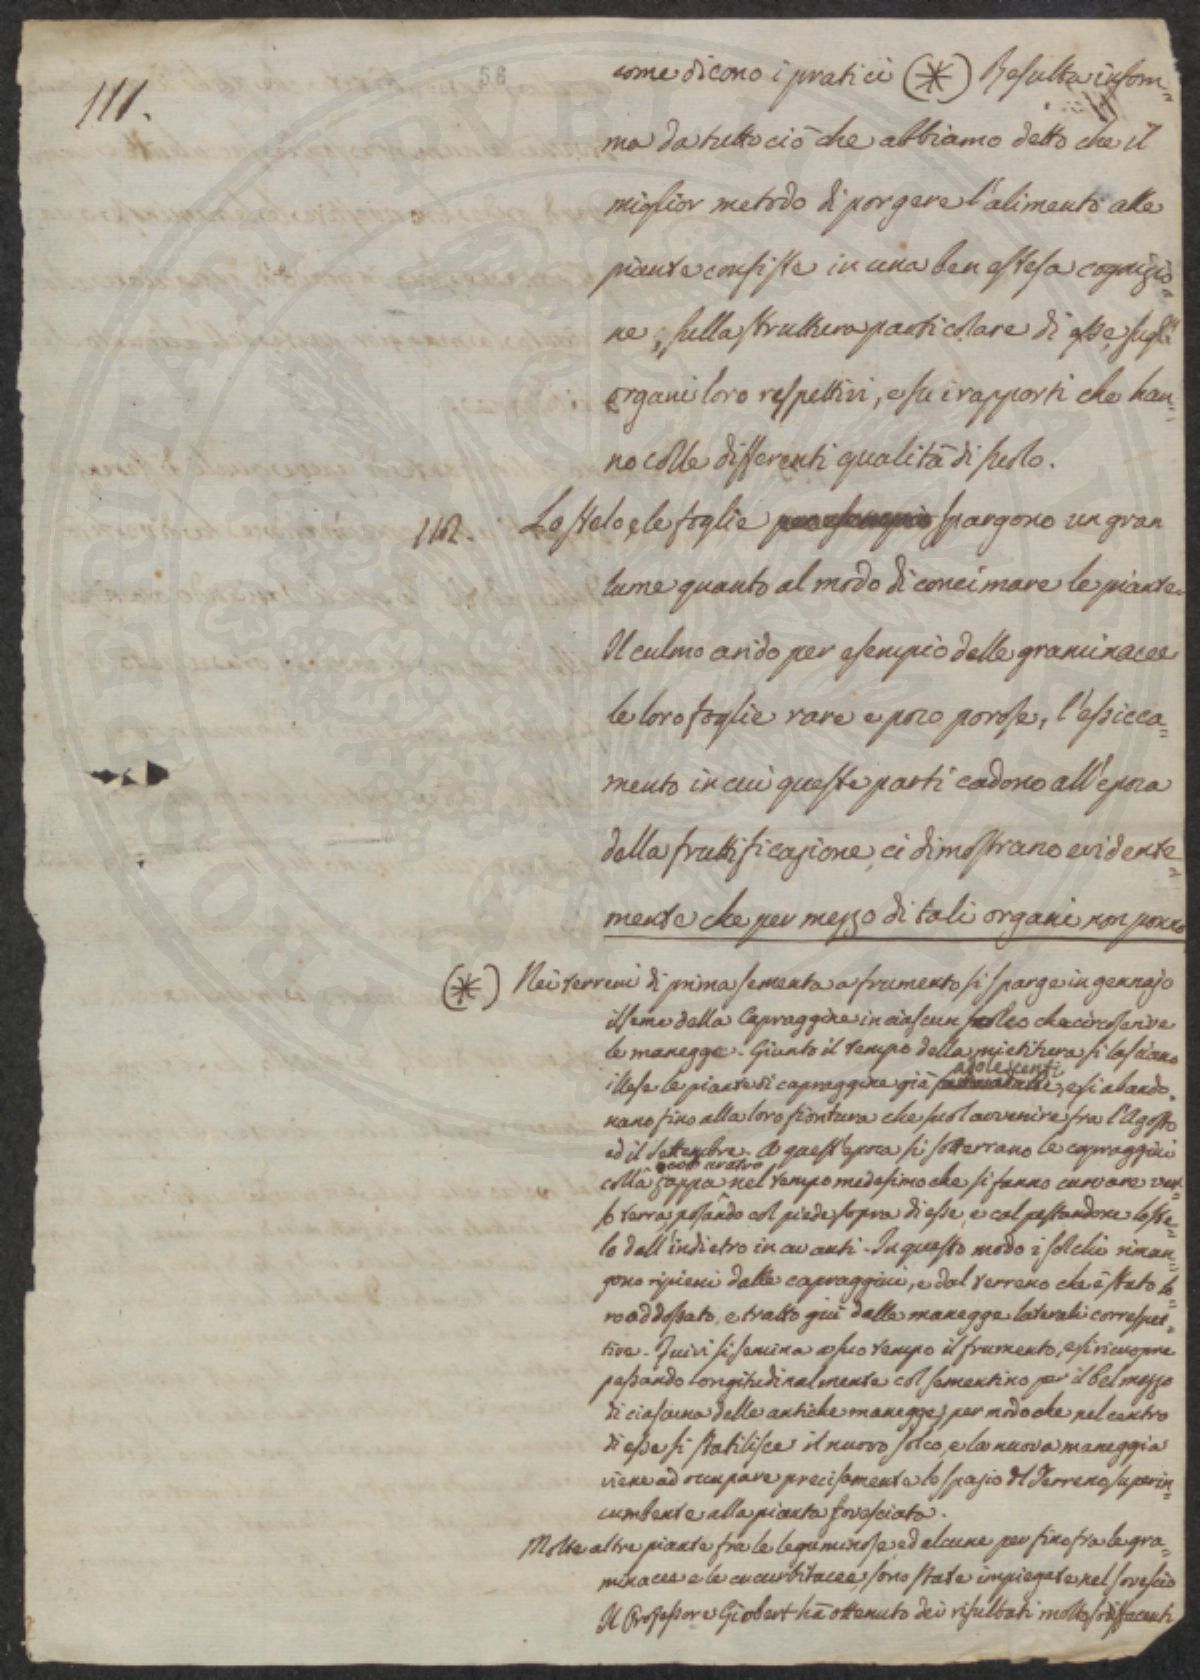 58
111.
come dicono i pratici (*) Resulta insom=
ma da tutto ciò che abbiamo detto che il
miglior metodo di porgere l'alimento alle
piante consiste in una ben estesa cognizio=
ne, sulla struttura particolare di esse, sugl'
organi loro respettivi, e su i rapporti che han=
no colle differenti qualità di suolo.
112. Lo stelo, e le foglie spargono un gran
lume quanto al modo di concimare le piante.
Il culmo arido per esempio delle graminacee
le loro foglie rare e poco porose, l'essicca=
mento in cui queste parti cadono all'epoca
della fruttificazione, ci dimostrano evidente=
mente che per mezzo di tali organi non ponno
(*) Nei terreni di prima sementa a frumento si sparge in gennajo
il seme della Capraggine in ciascun solco che circoscrive
le manegge. Giunto il tempo della mietitura si lasciano
adolescenti
illese le piante di capraggine già, e si abando=
nano fino alla loro fioritura che suol avvenire fra l'Agosto
ed il Settembre. A quest'epoca si sotterrano le capraggini
coll'aratro
colla zappa nel tempo medesimo che si fanno curvare ver=
so terra, posando col piede sopra di esse, e calpestandone lo ste=
lo dall'indietro in avanti. In questo modo i solchi riman=
gono ripieni dalle capraggini, e dal terreno che è stato lo=
ro addossato, e tratto giù dalle manegge laterali correspet=
tive. Quivi si semina a suo tempo il frumento, e si ricuopre
passando longitudinalmente col sementino per il bel mezzo
di ciascuna delle antiche manegge, per modo che nel centro
di esse si stabilisce il nuovo solco, e la nuova maneggia
viene ad occupare precisamente lo spazio del Terreno superin=
cumbente alla pianta sovesciata.
Molte altre piante fra le leguminose, ed alcune per fino fra le gra=
minacee e le cucurbitacee, sono state impiegate nel sovescio
Il Professore Giobert hà ottenuto dei risultati molto sodisfacenti